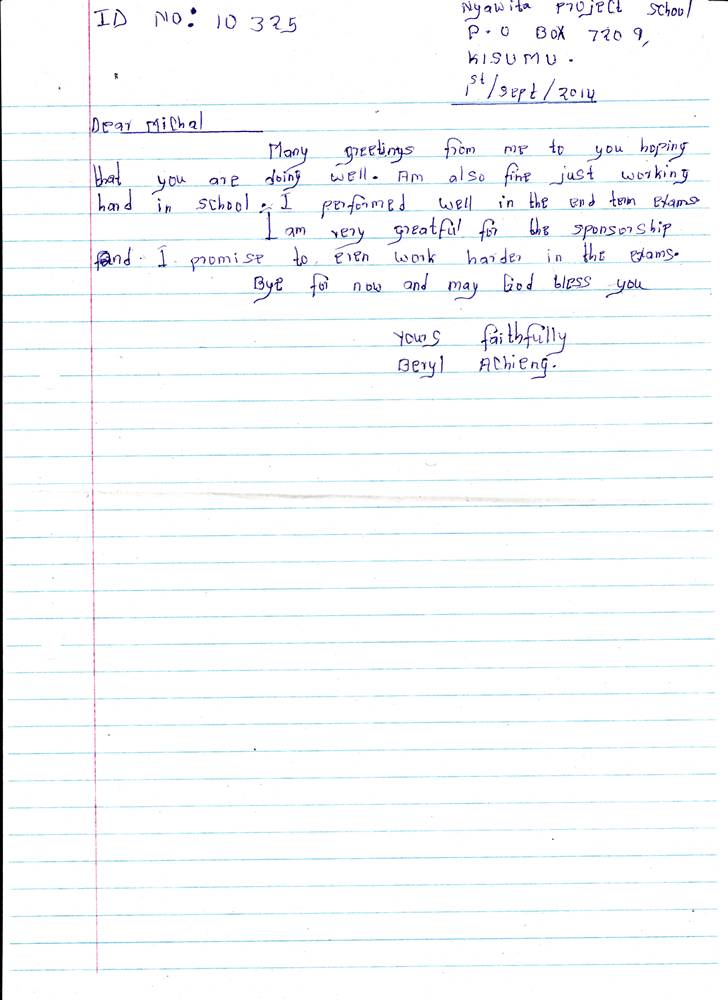 ID NO: 10325
Nyawita Project School
P.O BOX 7209,
KISUMU.
1st/Sept/2014
Dear Michal
Many greetings from me to you hoping
that you are doing well. Am also fine just working
hard in school. I performed well in the end term exams
I am very greatful for the sponsorship
and I promise to even work harder in the exams.
Bye for now and may God bless you
Yours faithfully
Beryl Achieng.